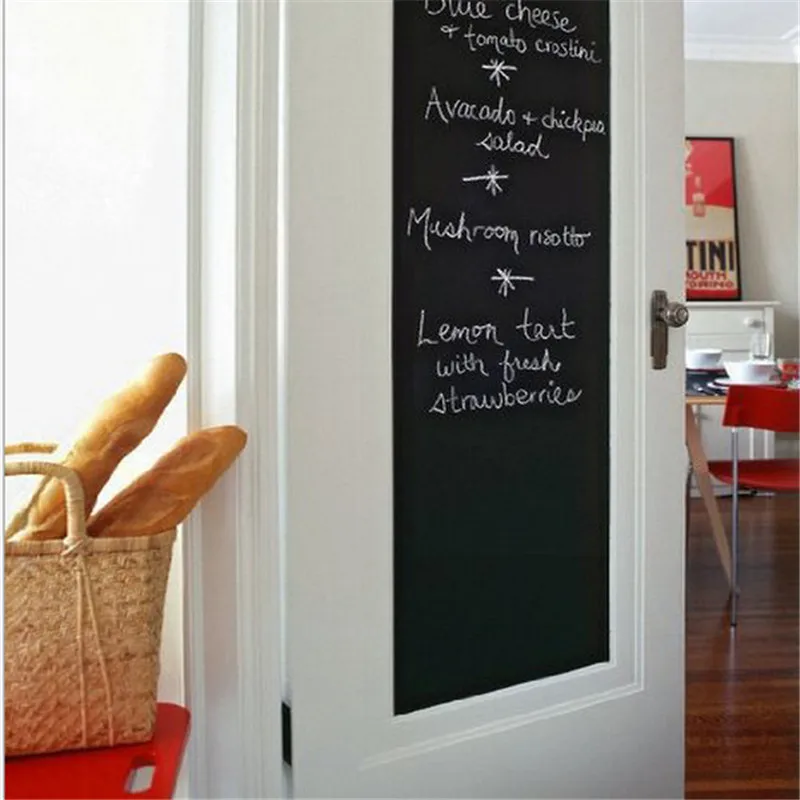 Blue cheese
+ tomato crostini
Avacado + chickpea
salad
Mushroom risotto
Lemon tart
with fresh
strawberries
TINI
TORINO